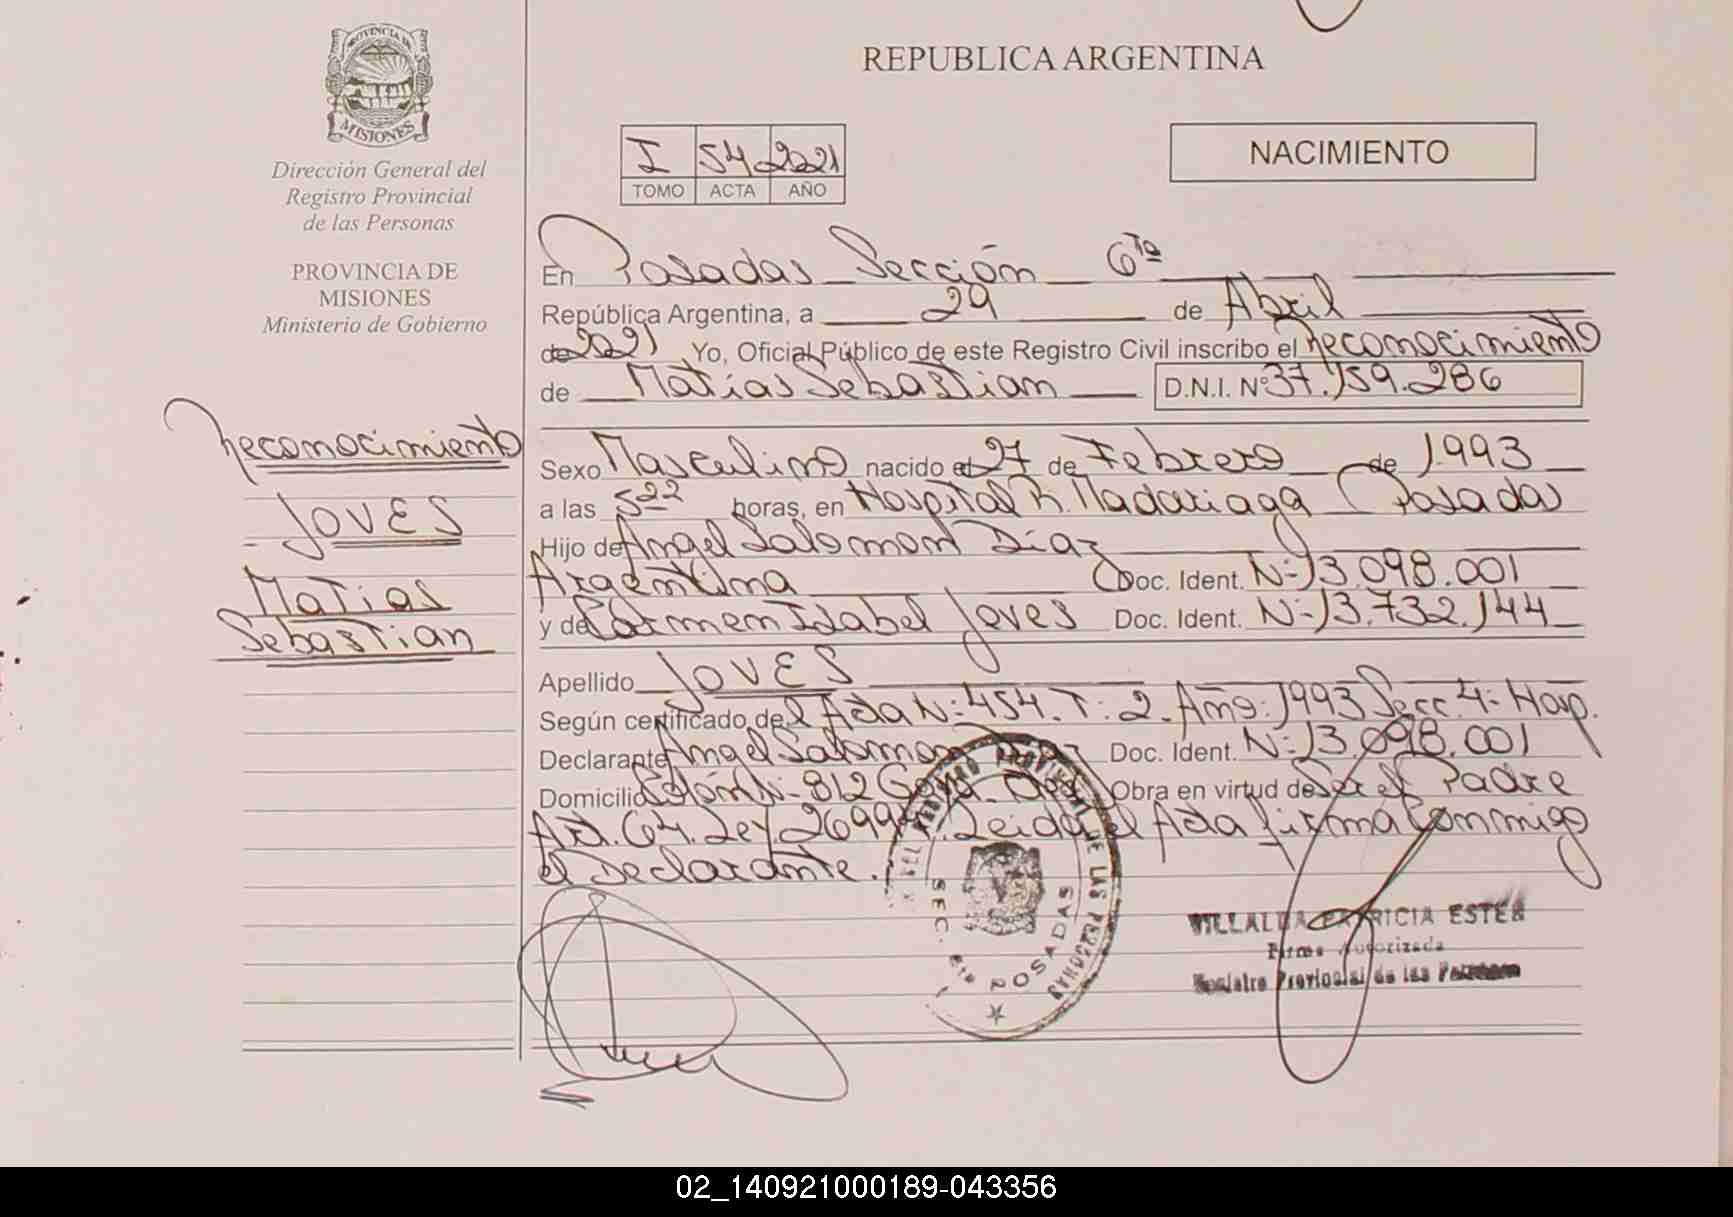 PROVINCIA DE
MISIONES
Dirección General del
Registro Provincial
de las Personas
PROVINCIA DE
MISIONES
Ministerio de Gobierno
Reconocimiento
JOVES
Matias
Sebastian
REPUBLICA ARGENTINA
I 54 2021
TOMO ACTA AÑO
NACIMIENTO
En Posadas Sección 6ta
República Argentina, a 29 de Abril
de 2021 Yo, Oficial Público de este Registro Civil inscribo el Reconocimiento
de Matías Sebastian D.N.I. Nº 37.159.286
Sexo Masculino nacido el 27 de Febrero de 1993
a las 5 22 horas, en Hospital R. Madariaga Posadas
Hijo de Angel Salomon Díaz
Argentina Doc. Ident. N- 13.098.001
y de Carmen Isabel Joves Doc. Ident. N- 13.732.144
Apellido JOVES
Según certificado del Acta N: 454. T: 2. Año: 1993 Secc. 4- Hosp.
Declarante Angel Salomon Diaz Doc. Ident. N- 13.098.001
Domicilio N- 812 Obra en virtud de Ser el Padre
Art. 64. Ley 26994. Leida el Acta firma Conmigo
el Declarante.
REGISTRO PROVINCIAL DE LAS PERSONAS
SEC. 6ta POSADAS
VILLALBA PATRICIA ESTER
Firma Autorizada
Registro Provincial de las Personas
02_140921000189-043356